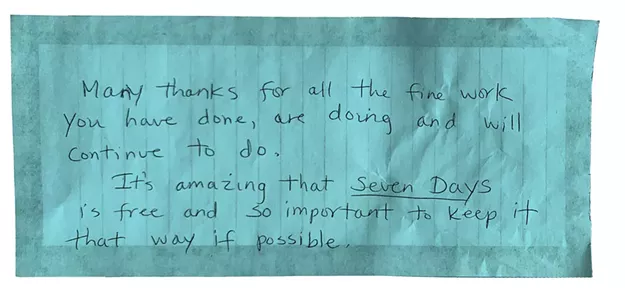 Many thanks for all the fine work
you have done, are doing and will
continue to do.
It's amazing that Seven Days
is free and so important to keep it
that way if possible.